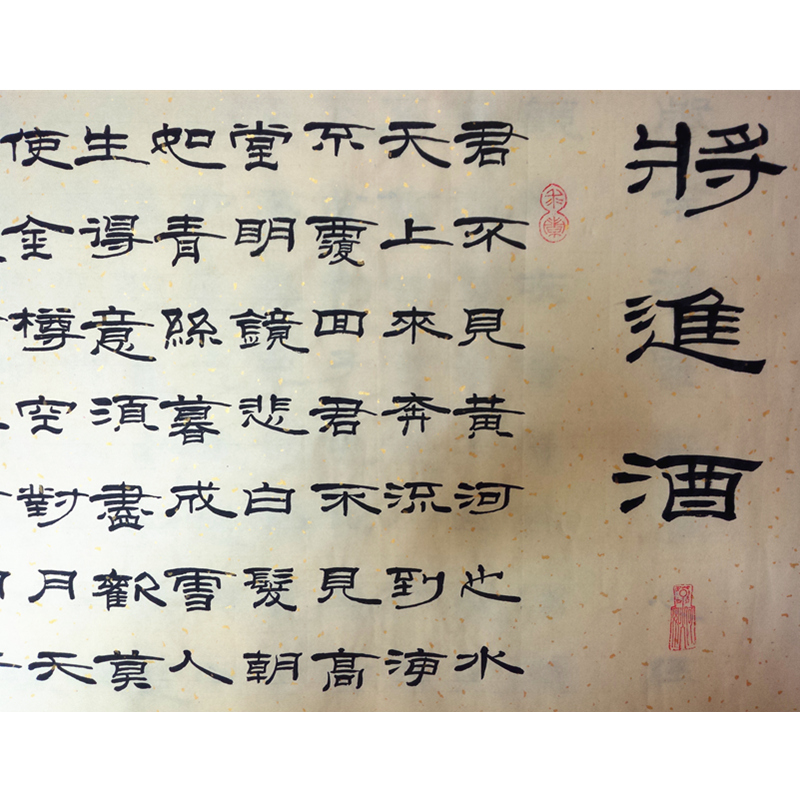 將進酒
君不見黃河之水
天上來奔流到海
不覆回君不見高
堂明鏡悲白髮朝
如青絲暮成雪人
生得意須盡歡莫
使金樽空對月天